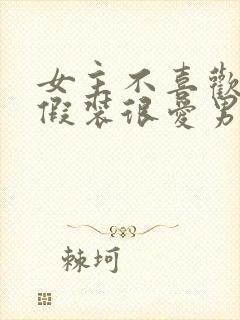 女主不喜歡
假裝很愛男
棘坷